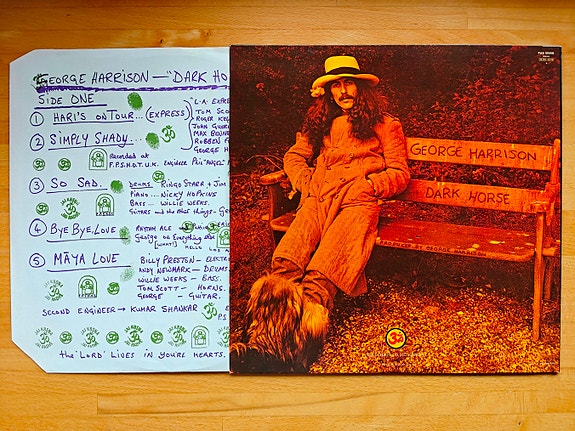 GEORGE HARRISON — "DARK HO
SIDE ONE
① HARI'S ON TOUR... (EXPRESS)
L.A. EXPRE
TOM SCO
ROGER KEL
JOHN GUER
MAX BENNE
ROBBEN F
GEORGE H
② SIMPLY SHADY...
Recorded at
F.P.S.H.O.T. U.K. ENGINEER PHIL "ANGEL"
③ SO SAD.
DRUMS RINGO STARR + JIM
PIANO — NICKY HOPKINS
BASS — WILLIE WEEKS.
GUITARS and the other things — GE
④ BYE BYE, LOVE
RHYTHM ACE
George on Everything else
[WHAT] HELLO
⑤ MĀYA LOVE
BILLY PRESTON — ELECTR
ANDY NEWMARK — DRUMS
WILLIE WEEKS — BASS.
TOM SCOTT — HORNS.
GEORGE — GUITAR.
SECOND ENGINEER → KUMAR SHANKAR
the 'LORD' LIVES IN YOU'RE HEARTS.
GEORGE HARRISON
DARK HORSE
PRODUCED BY GEORGE HARRISON